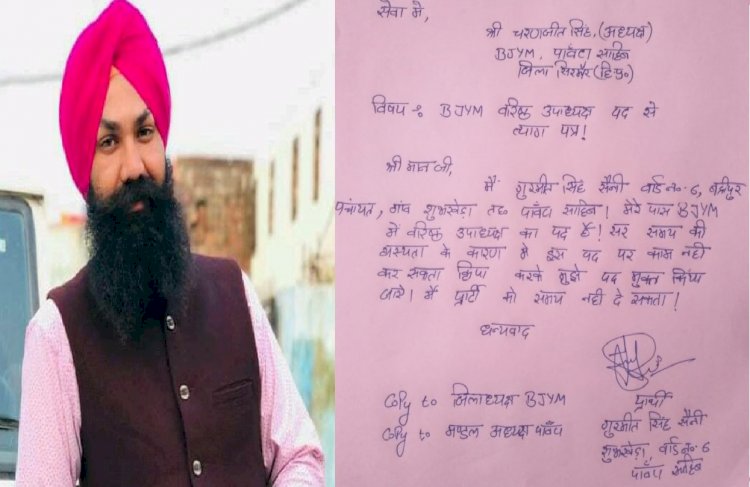 सेवा मे,
श्री चरणजीत सिंह, (अध्यक्ष)
BJYM, पाँवटा साहिब
जिला सिरमौर (हि॰प्र॰)
विषय :- BJYM वरिष्ठ उपाध्यक्ष पद से
त्याग पत्र!
श्री मान जी,
मैं गुरमीत सिंह सैनी वार्ड न०-6,
पंचायत, गांव शुभखेड़ा तह० पाँवटा साहिब! मेरे पास BJYM
में वरिष्ठ उपाध्यक्ष का पद है! सर समय की
के कारण मे इस पद पर काम नही
कर सकता क्रिपा करके मुझे पद मुक्त किया
जाये। मैं पार्टी को समय नही दे सकता!
धन्यवाद
प्रार्थी
Copy to जिलाध्यक्ष BJYM
गुरमीत सिंह सैनी
Copy to मण्डल अध्यक्ष पाँवटा
शुभखेड़ा, वार्ड न०-6
पाँवटा साहिब